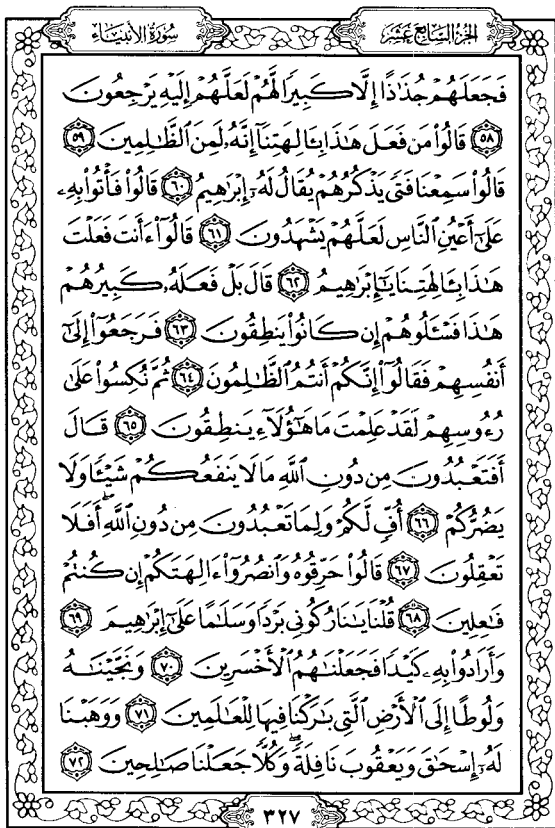 الجزء السابع عشر
سورة الأنبياء
فَجَعَلَهُمْ جُذَٰذًا إِلَّا كَبِيرًا لَّهُمْ لَعَلَّهُمْ إِلَيْهِ يَرْجِعُونَ
٥٨ قَالُوا۟ مَن فَعَلَ هَٰذَا بِـَٔالِهَتِنَآ إِنَّهُۥ لَمِنَ ٱلظَّٰلِمِينَ ٥٩
قَالُوا۟ سَمِعْنَا فَتًى يَذْكُرُهُمْ يُقَالُ لَهُۥٓ إِبْرَٰهِيمُ ٦٠ قَالُوا۟ فَأْتُوا۟ بِهِۦ
عَلَىٰٓ أَعْيُنِ ٱلنَّاسِ لَعَلَّهُمْ يَشْهَدُونَ ٦١ قَالُوٓا۟ ءَأَنتَ فَعَلْتَ
هَٰذَا بِـَٔالِهَتِنَا يَٰٓإِبْرَٰهِيمُ ٦٢ قَالَ بَلْ فَعَلَهُۥ كَبِيرُهُمْ
هَٰذَا فَسْـَٔلُوهُمْ إِن كَانُوا۟ يَنطِقُونَ ٦٣ فَرَجَعُوٓا۟ إِلَىٰٓ
أَنفُسِهِمْ فَقَالُوٓا۟ إِنَّكُمْ أَنتُمُ ٱلظَّٰلِمُونَ ٦٤ ثُمَّ نُكِسُوا۟ عَلَىٰ
رُءُوسِهِمْ لَقَدْ عَلِمْتَ مَا هَٰٓؤُلَآءِ يَنطِقُونَ ٦٥ قَالَ
أَفَتَعْبُدُونَ مِن دُونِ ٱللَّهِ مَا لَا يَنفَعُكُمْ شَيْـًٔا وَلَا
يَضُرُّكُمْ ٦٦ أُفٍّ لَّكُمْ وَلِمَا تَعْبُدُونَ مِن دُونِ ٱللَّهِ ۖ أَفَلَا
تَعْقِلُونَ ٦٧ قَالُوا۟ حَرِّقُوهُ وَٱنصُرُوٓا۟ ءَالِهَتَكُمْ إِن كُنتُمْ
فَٰعِلِينَ ٦٨ قُلْنَا يَٰنَارُ كُونِى بَرْدًا وَسَلَٰمًا عَلَىٰٓ إِبْرَٰهِيمَ ٦٩
وَأَرَادُوا۟ بِهِۦ كَيْدًا فَجَعَلْنَٰهُمُ ٱلْأَخْسَرِينَ ٧٠ وَنَجَّيْنَٰهُ
وَلُوطًا إِلَى ٱلْأَرْضِ ٱلَّتِى بَٰرَكْنَا فِيهَا لِلْعَٰلَمِينَ ٧١ وَوَهَبْنَا
لَهُۥٓ إِسْحَٰقَ وَيَعْقُوبَ نَافِلَةً ۖ وَكُلًّا جَعَلْنَا صَٰلِحِينَ ٧٢
٣٢٧